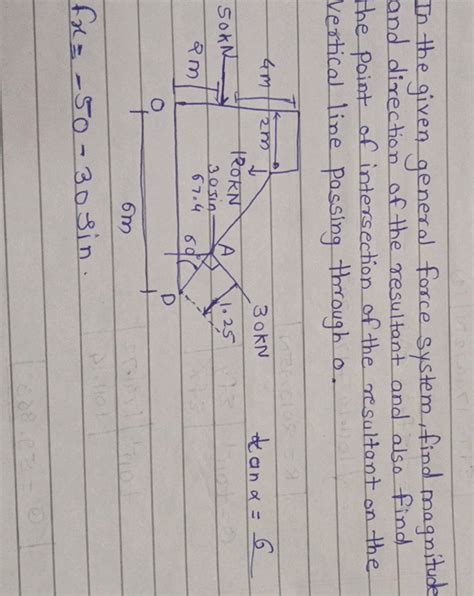 In the given general force system, find magnitude
and direction of the resultant and also find
the point of intersection of the resultant on the
vertical line passing through o.
4m
2m
50KN
120KN
30sin
67.4
A
30KN
1.25
2m
60
O
D
6m
tanα = 6
fx = -50 - 30 sin.